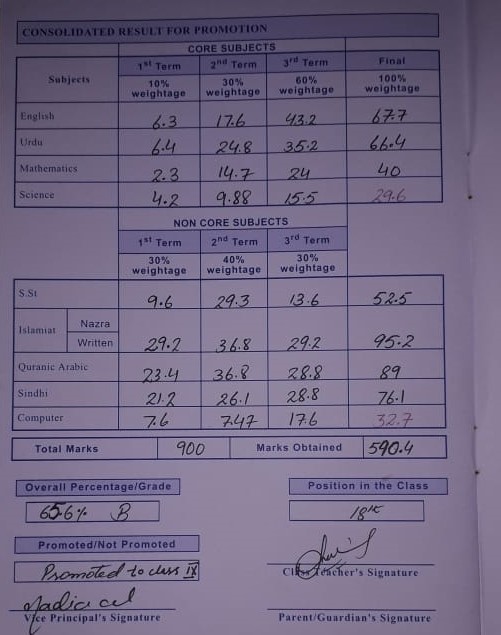 CONSOLIDATED RESULT FOR PROMOTION
CORE SUBJECTS
Subjects 1st Term 2nd Term 3rd Term Final
10% weightage 30% weightage 60% weightage 100% weightage
English 6.3 17.6 43.2 67.7
Urdu 6.4 24.8 35.2 66.4
Mathematics 2.3 14.7 24 40
Science 4.2 9.88 15.5 29.6
NON CORE SUBJECTS
1st Term 2nd Term 3rd Term
30% weightage 40% weightage 30% weightage
S.St 9.6 29.3 13.6 52.5
Islamiat Nazra
Written 29.2 36.8 29.2 95.2
Quranic Arabic 23.4 36.8 28.8 89
Sindhi 21.2 26.1 28.8 76.1
Computer 7.6 7.47 17.6 32.7
Total Marks 900 Marks Obtained 590.4
Overall Percentage/Grade Position in the Class
65.6% B 18th
Promoted/Not Promoted
Promoted to class IX
Class Teacher's Signature
Vice Principal's Signature Parent/Guardian's Signature